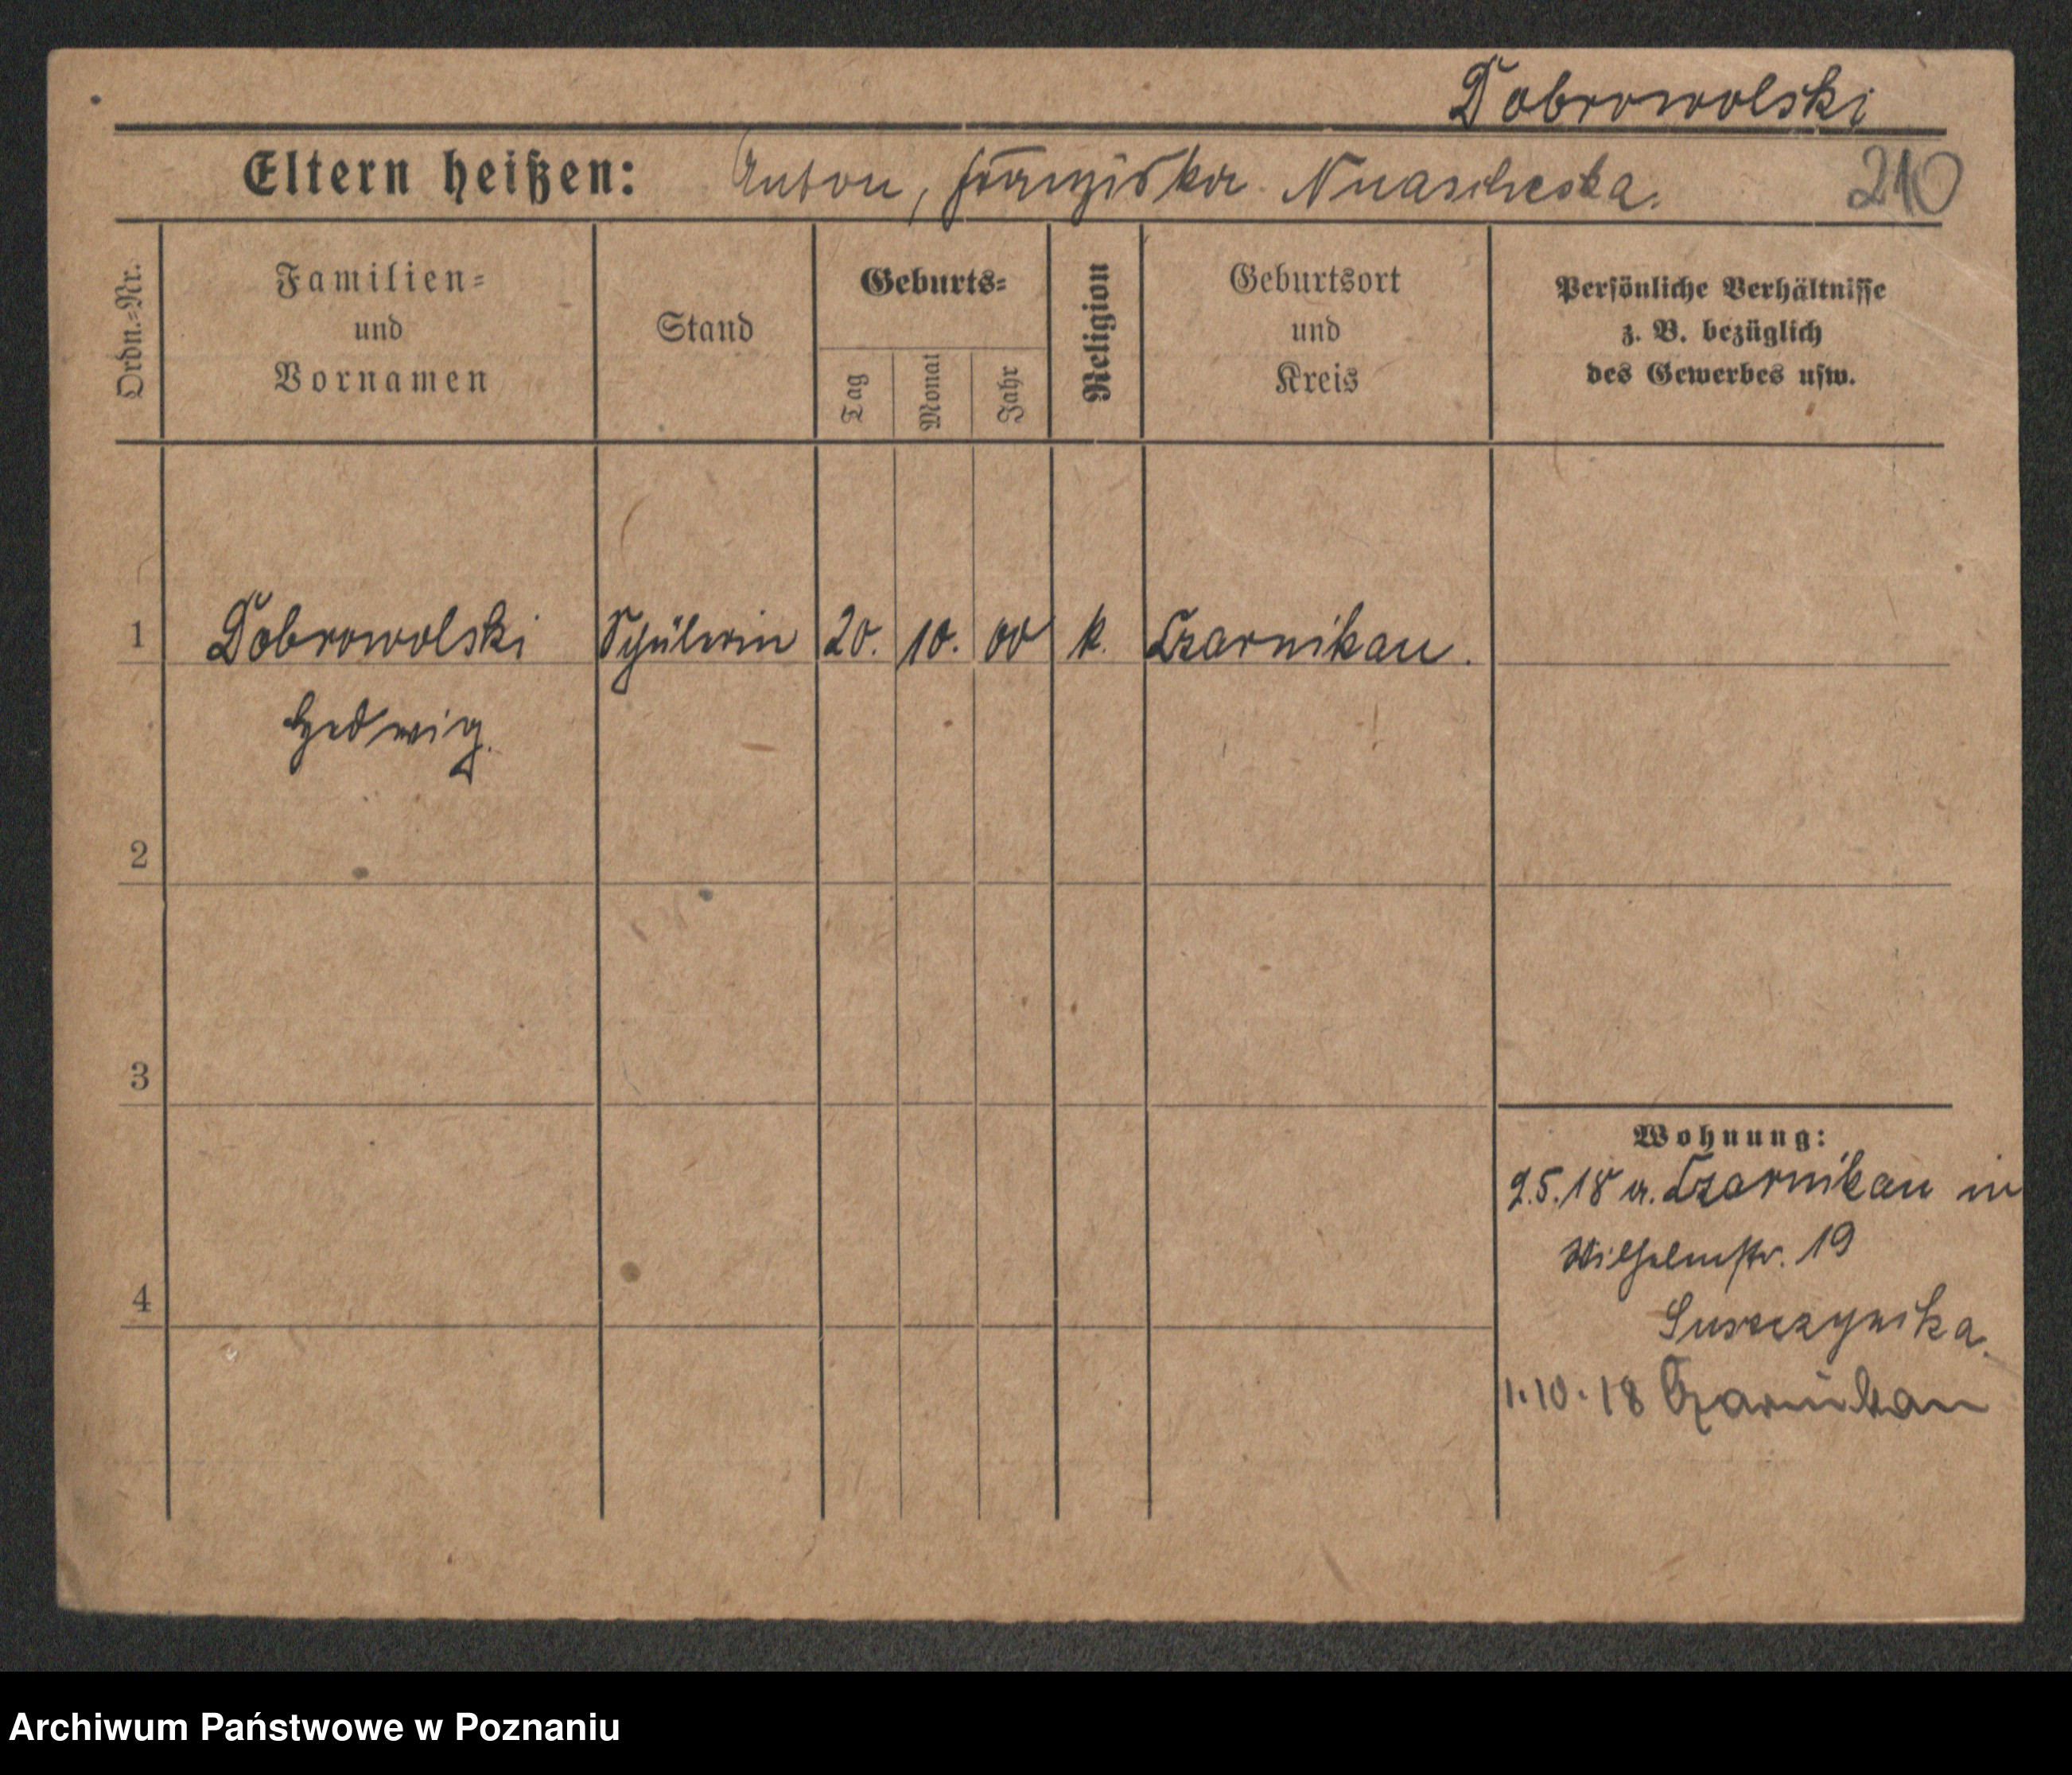 Dobrowolski
Eltern heißen: Anton, Franziska 210
Ordn.=Nr.
Familien=
und
Vornamen
Stand
Geburts=
Tag
Monat
Jahr
Religion
Geburtsort
und
Kreis
Persönliche Verhältnisse
z. B. bezüglich
des Gewerbes usw.
1 Dobrowolski Schülerin 20. 10. 00 k. Czarnikau.
Hedwig.
2
3
4
Wohnung:
2.5.18 a. Czarnikau in
Wilhelmstr. 19
1.10.18 Czarnikau
Archiwum Państwowe w Poznaniu